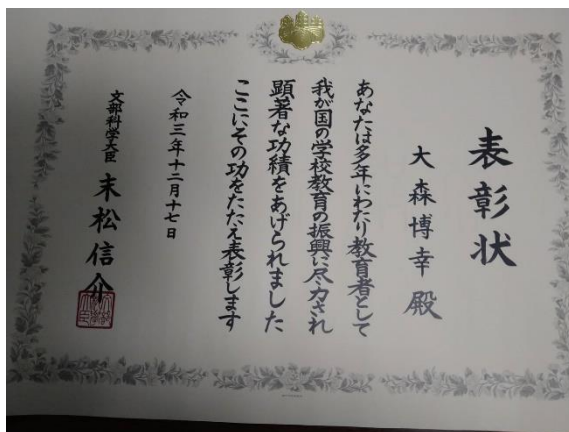 表彰状
大森博幸殿
あなたは多年にわたり教育者として
我が国の学校教育の振興に尽力され
顕著な功績をあげられました
ここにその功をたたえ表彰します
令和三年十二月十七日
文部科学大臣 末松信介